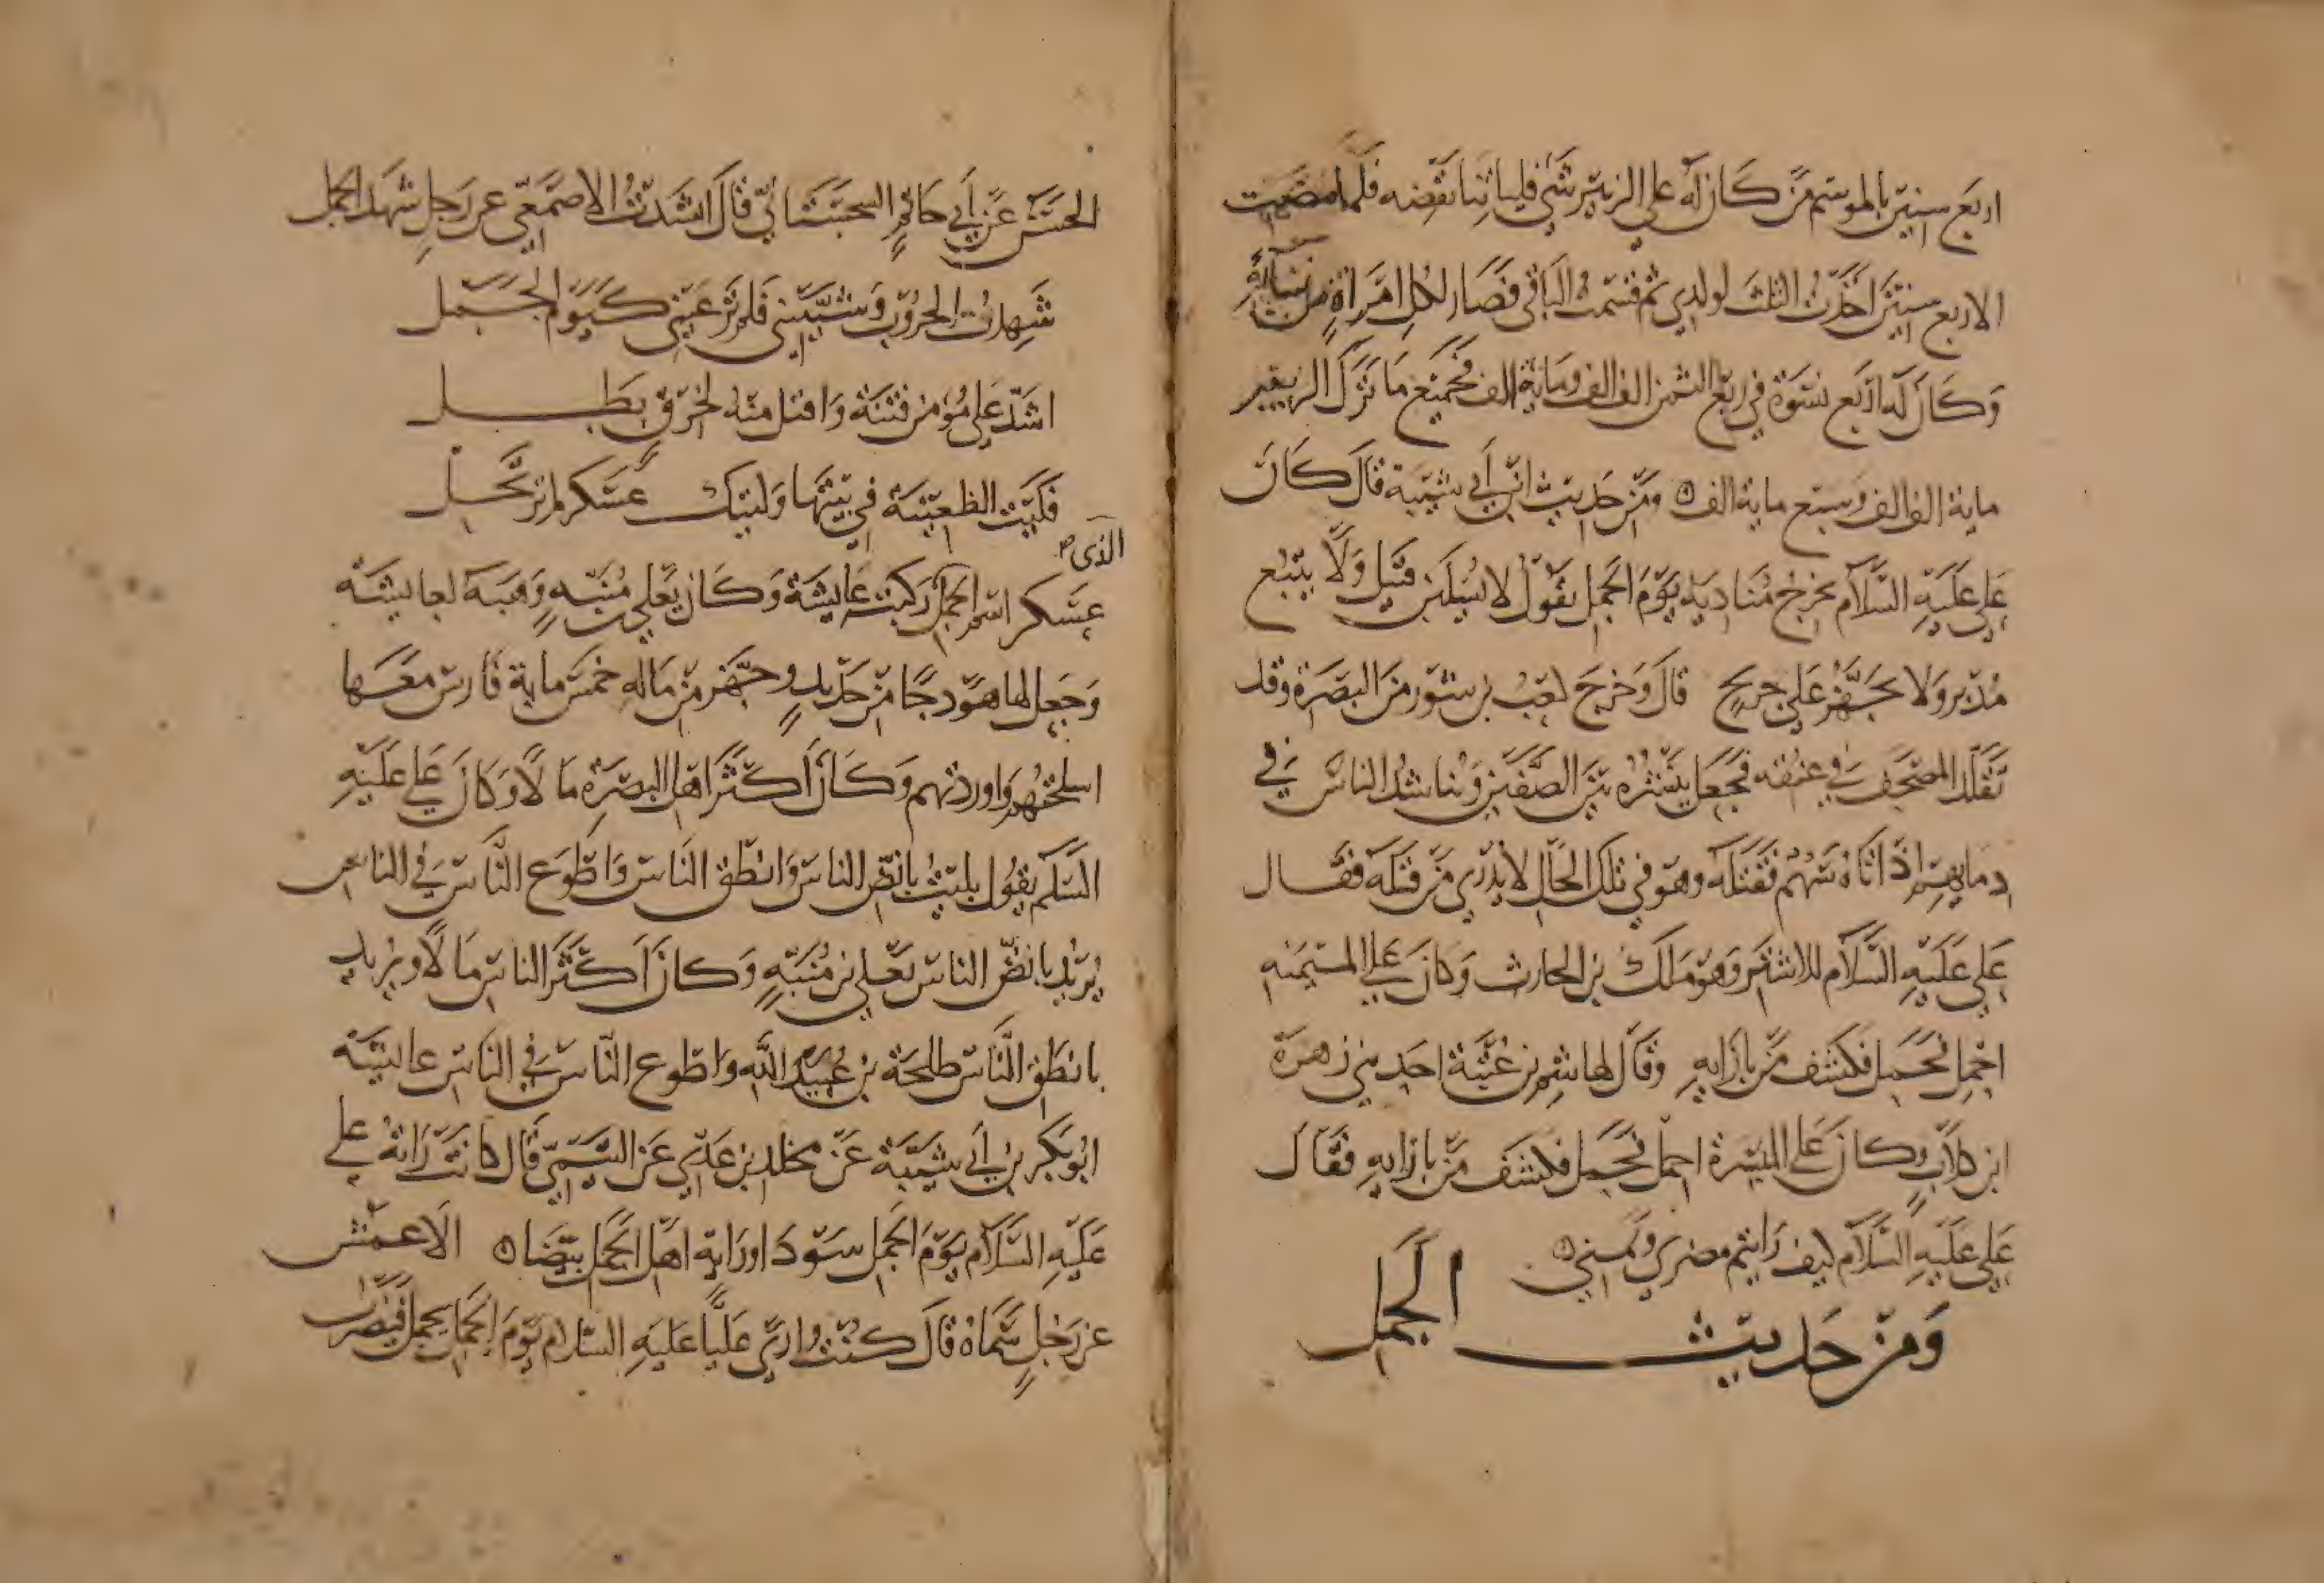 اربع سنين بالموسم من كان له على الزبير شي فلياتنا نقضه فلما مضت
الاربع سنين اخذت الثلث لولدي ثم قسمت الباقي فصار لكل امراة من نسائه
وكان له اربع نسوة في ربع الثمن الف الف ومائة الف فجميع ما ترك الزبير
ماية الف الف وسبع ماية الف ومن حديث ابن أبي شيبة قال كان
علي عليه السلام يخرج مناديه يوم الجمل يقول لا يسلبن قتيل ولا يتبع
مدبر ولا يجهز على جريح قال وخرج كعب بن سور من البصرة وقد
تقلد المصحف في عنقه فجعل ينشره بين الصفين ويناشد الناس في
دمايهم إذ اتاه سهم فقتله وهو في تلك الحال لا يدري من قتله فقال
علي عليه السلام للاشتر وهو ملك بن الحارث وكان على الميمنه
احمل فحمل فكشف من بازايه وقال لهاشم بن عتبة احد بني زهرة
ابن كلاب وكان على الميسرة احمل فحمل فكشف من بازايه فقال
علي عليه السلام كيف رايتم مضري ويمني
ومن حديث الجمل
الحسن عن أبي حاتم السجستاني قال انشدنا الاصمعي عن رجل شهد الجمل
شهدت الحروب وشيبنني فلم تر عيني كيوم الجمل
اشد على مؤمن فتنة واقتل منه لخرق بطل
فليت الظعينة في بيتها وليتك عسكر لم ترتحل
الذى
عسكر اسم الجمل ركبت عايشة وكان يعلى بن منبه وهبه لعايشة
وجعل لها هودجا من حديد وجهز من ماله خمس ماية فارس معها
اسلحتهم وازودتهم وكان أكثر اهل البصرة مالا وكان علي عليه
السلم يقول بليت بانض الناس وانطق الناس واطوع الناس في الناس
يريد بانض الناس يعلى بن منبه وكان أكثر الناس مالا ويريد
بانطق الناس طلحة بن عبيد الله واطوع الناس في الناس عايشة
ابو بكر بن أبي شيبة عن مخلد بن عدي عن التيمي قال كانت راية علي
عليه السلام يوم الجمل سودا وراية اهل الجمل بيضا الاعمش
عن رجل سماه قال كنت ارى عليا عليه السلام يوم الجمل يحمل فيضرب